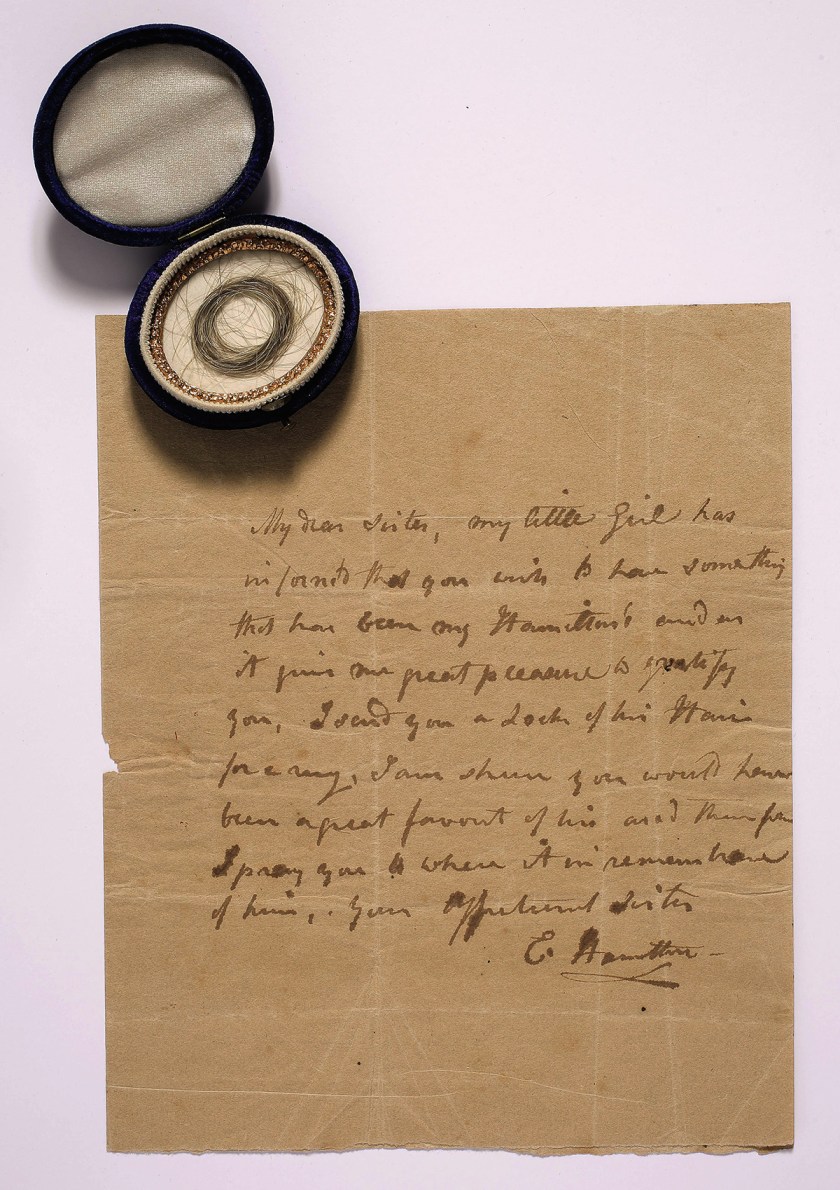 My dear sister, my little Girl has
inform'd that you wish to have something
that has been my Hamilton's and as
it givs me great pleasure to gratify
you, I send you a Lock of his Hair
for a ring, I am shure you would have
been a great favourt of his and therefore
I pray you to where it in remembrance
of him, . your affectionat sister
E. Hamilton -